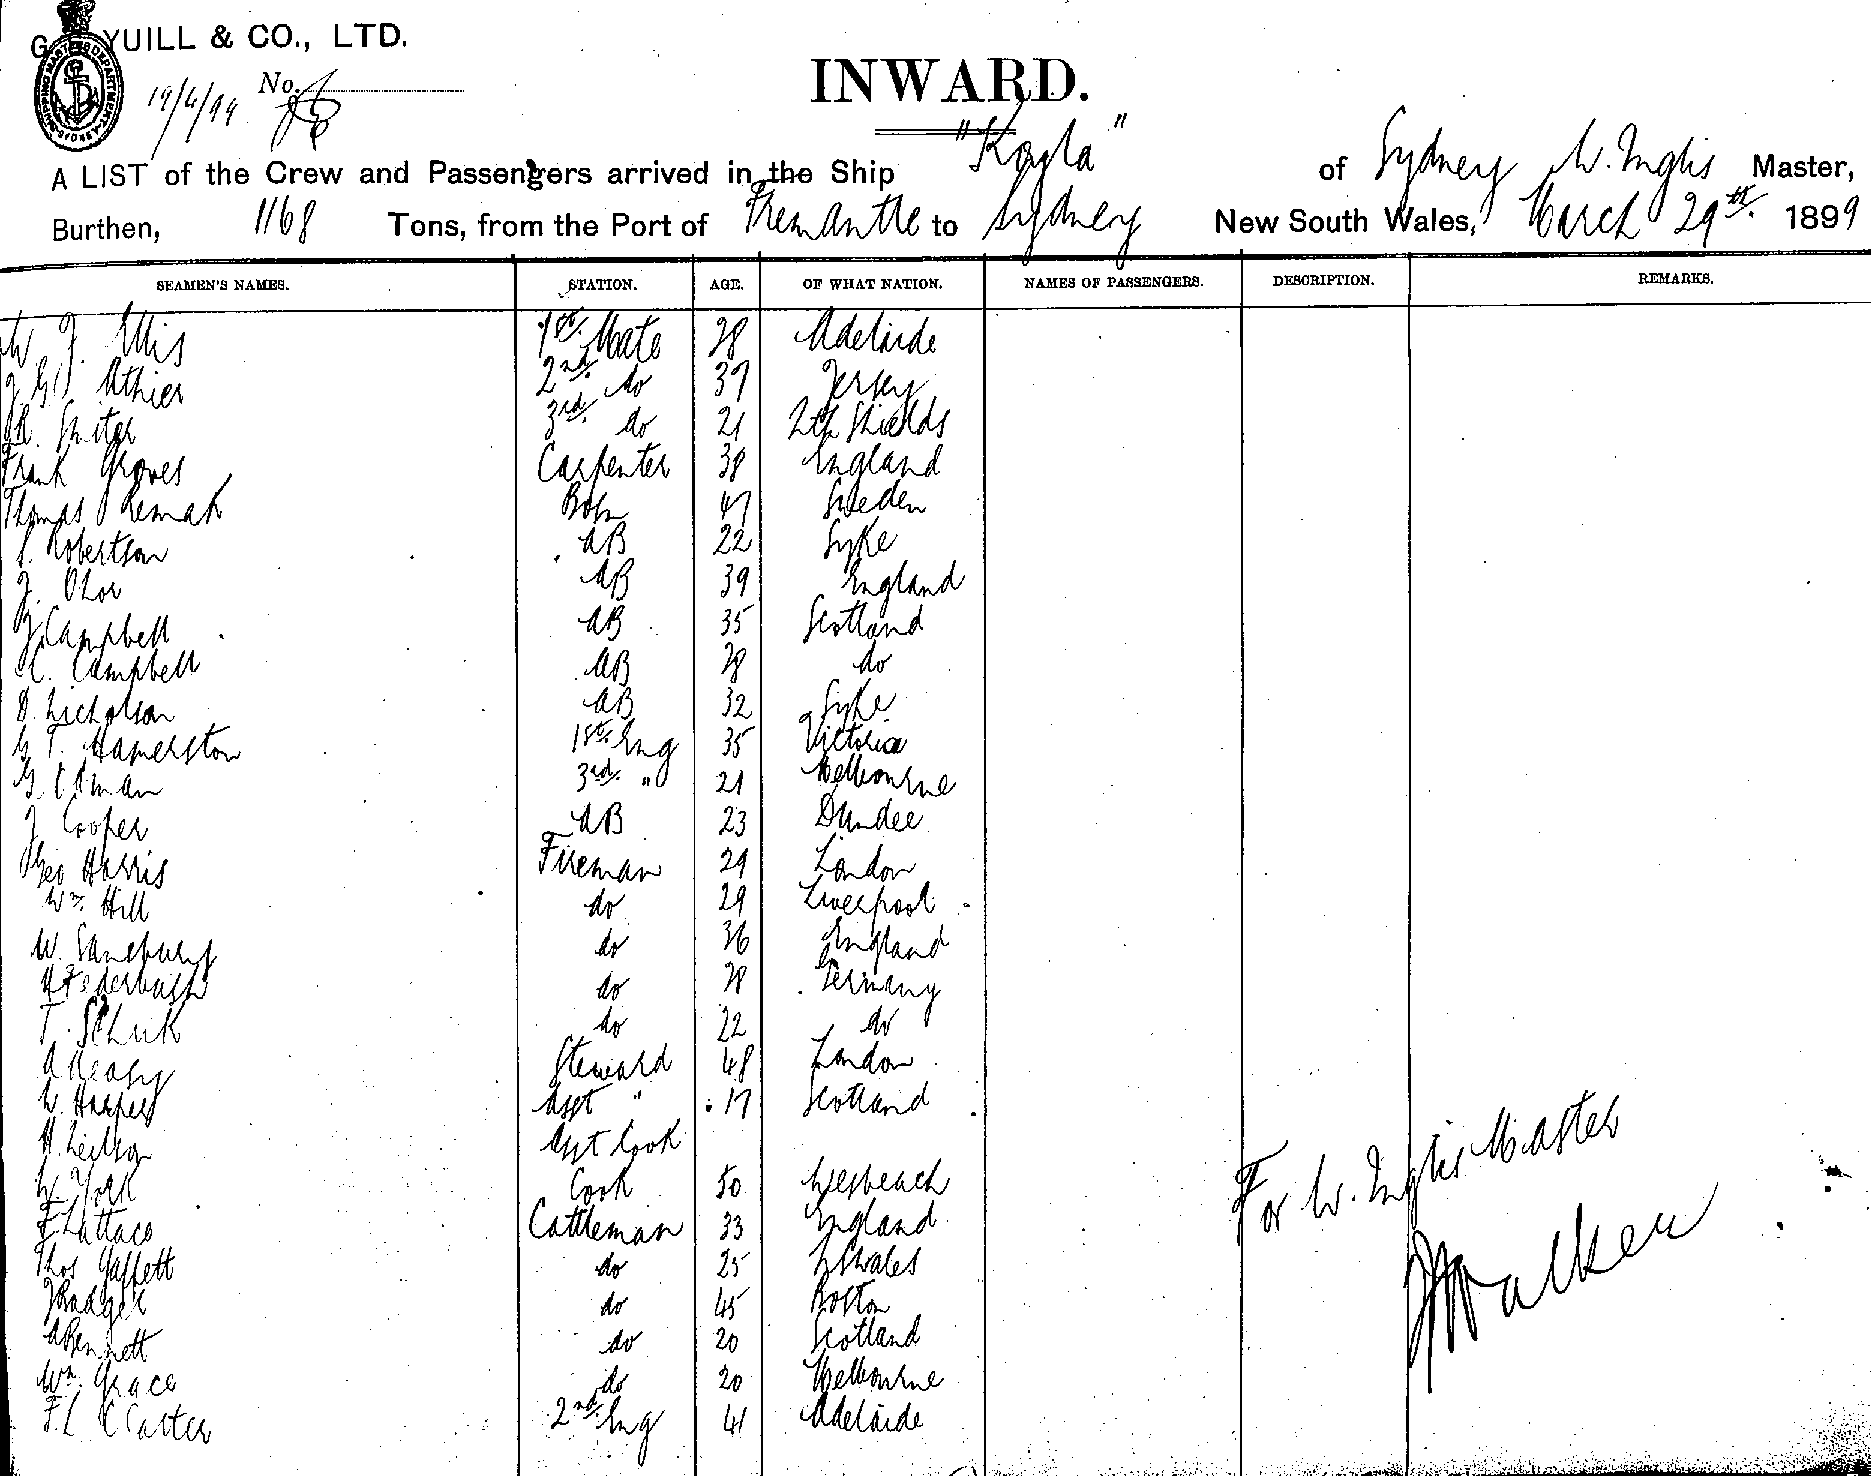 G. YUILL & CO., LTD.
No.
INWARD.
A LIST of the Crew and Passengers arrived in the Ship of Sydney W. Inglis Master,
Burthen, 1168 Tons, from the Port of Fremantle to Sydney New South Wales, March 29th 1899
SEAMEN'S NAMES. STATION. AGE. OF WHAT NATION. NAMES OF PASSENGERS. DESCRIPTION. REMARKS.
W J. Ellis 1st Mate 28 Adelaide
Athier 2nd do 37 Jersey
3rd do 21 Nth Shields
Frank Groves Carpenter 38 England
Thomas Bosn 47 Sweden
Robertson AB 22 Syke
J. AB 39 England
J. Campbell AB 35 Scotland
Campbell AB 28 do
D. Nicholson AB 32 Syke
G T. Hamerston 1st Eng 35 Victoria
G. 3rd " 21 Melbourne
J Cooper AB 23 Dundee
Geo Harris Fireman 29 London
Wm. Hill do 29 Liverpool
W. do 36 England
Federbush do 28 Germany
T. Schuk do 22 do
Steward 48 London
W. Harper Asst " 17 Scotland
Asst Cook
York Cook 50 Wesbeach
F Lattace Cattleman 33 England
Thos do 25 N S Wales
do 45 Boston
A Bennett do 20 Scotland
Wm. Grace do 20 Melbourne
F. L Carter 2nd Eng 41 Adelaide
For W. Inglis Master
Walker